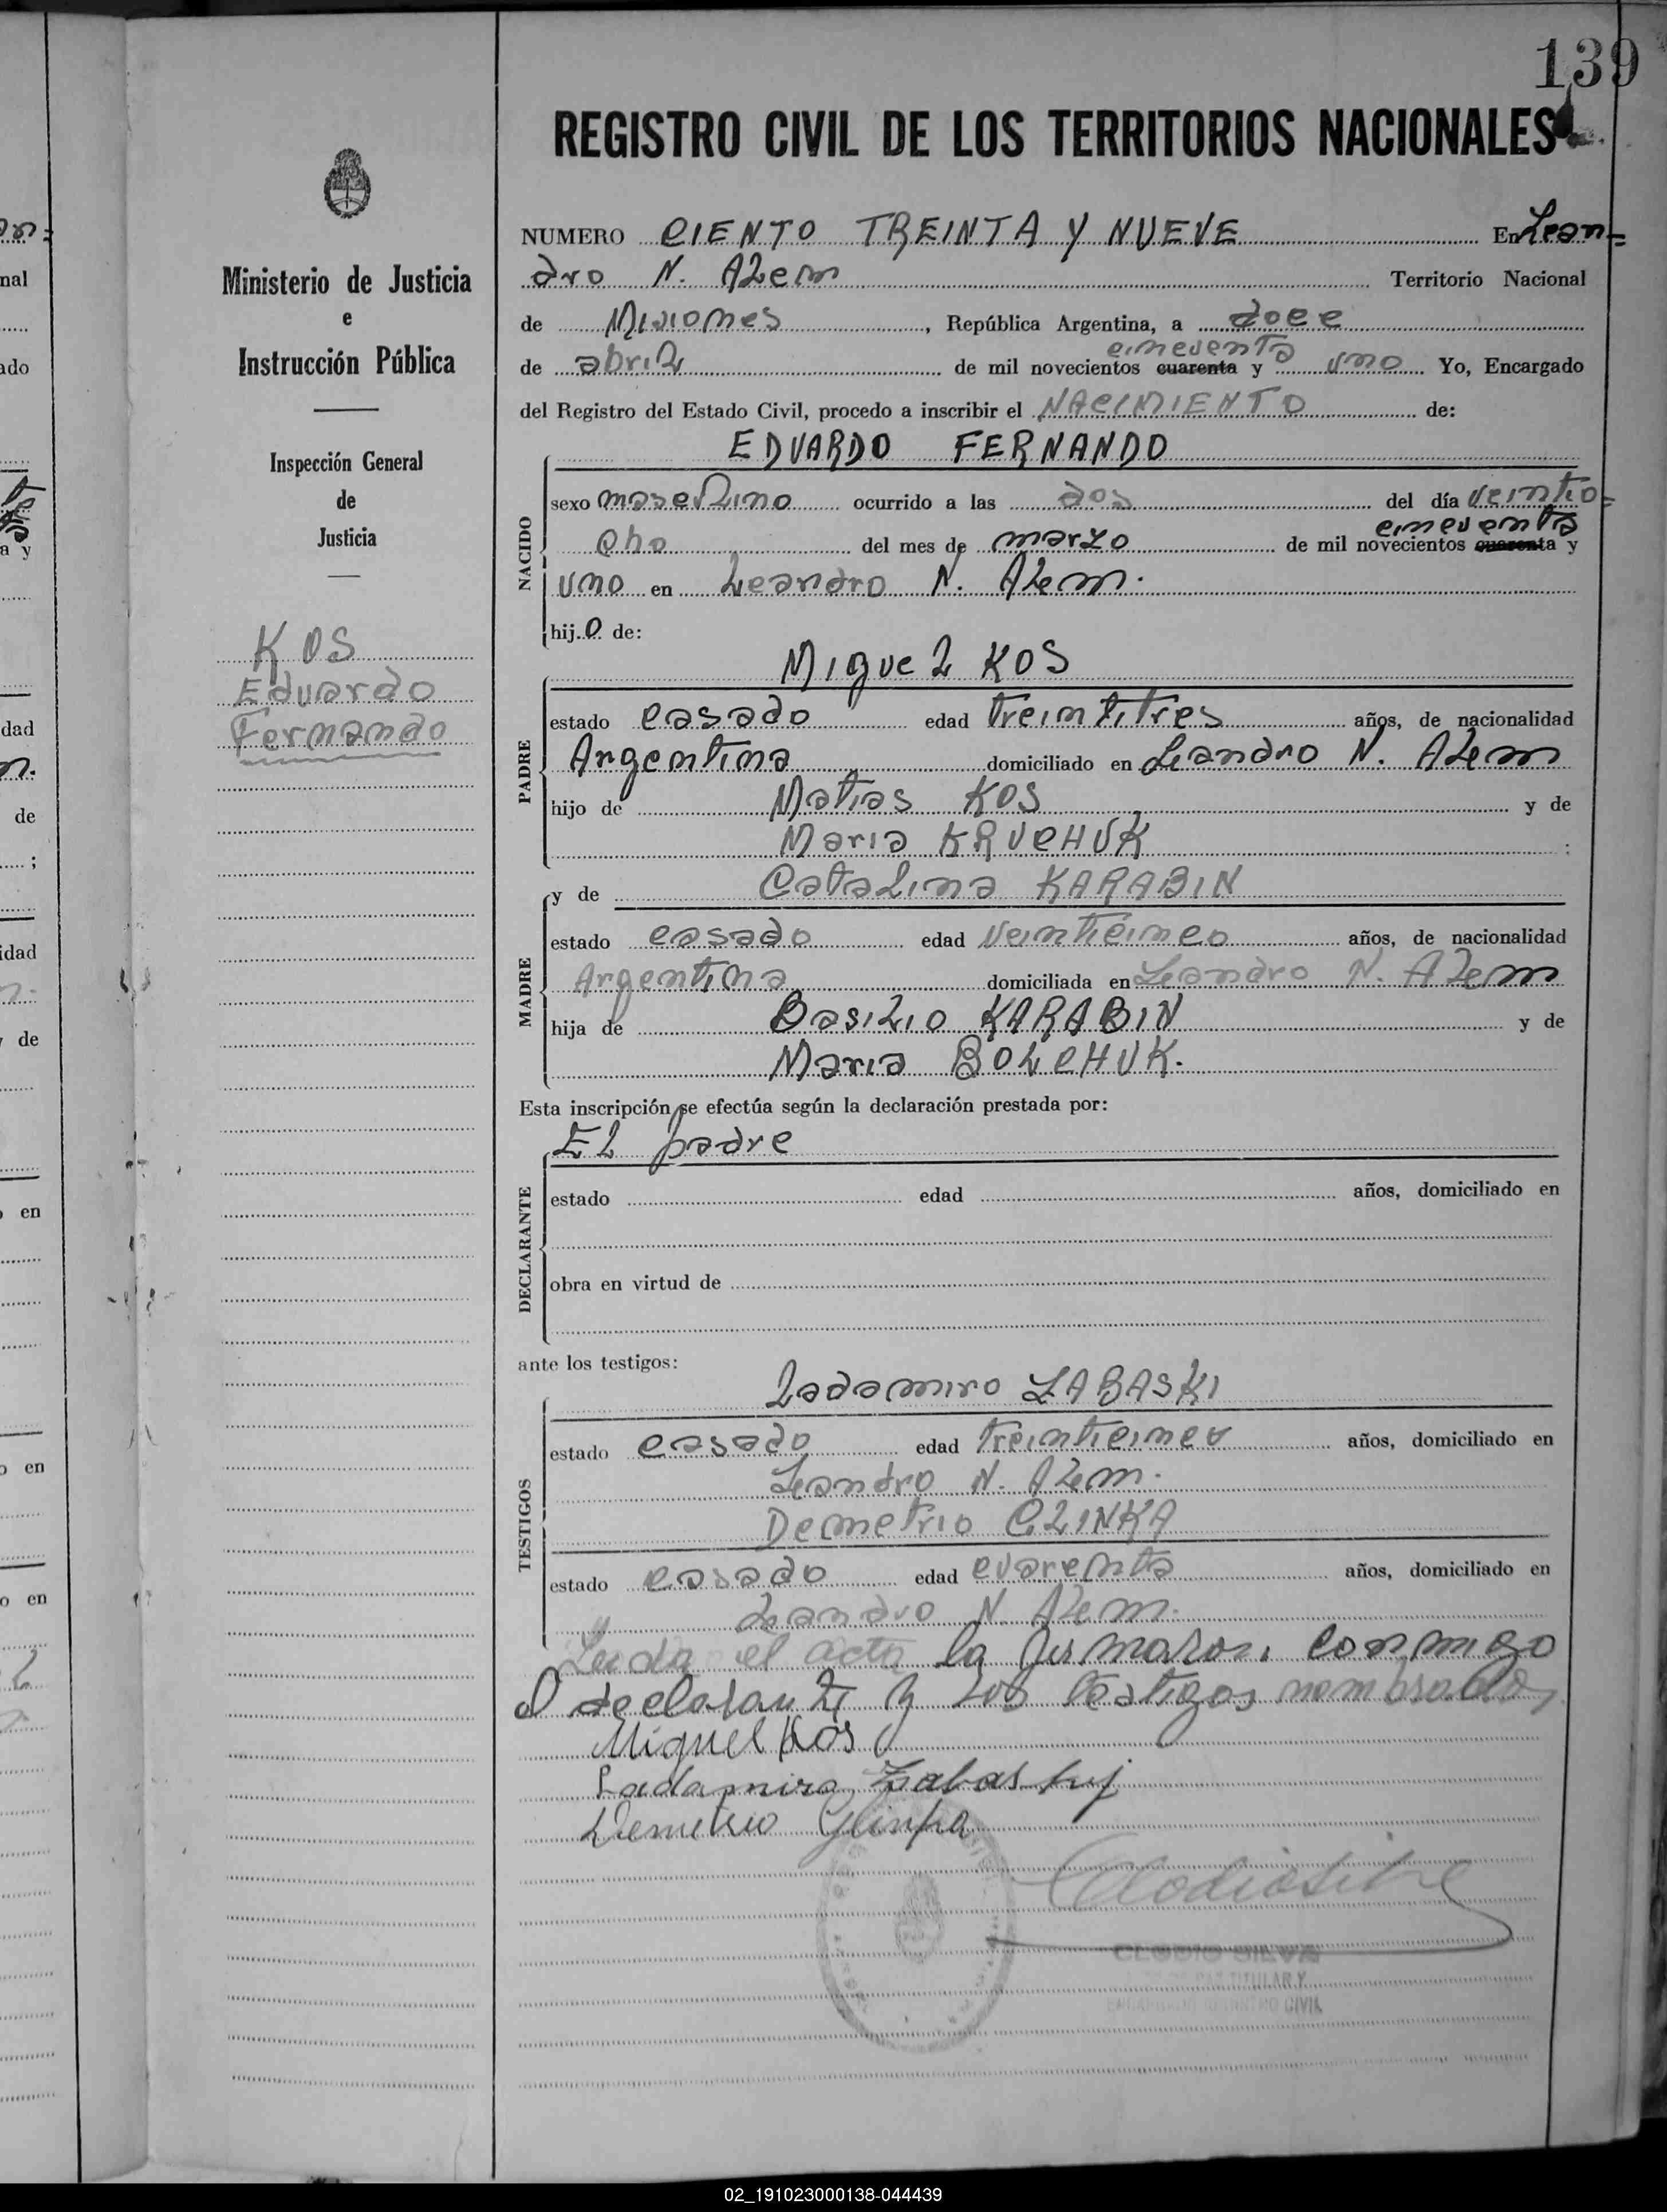 139
REGISTRO CIVIL DE LOS TERRITORIOS NACIONALES
NUMERO CIENTO TREINTA Y NUEVE En Lean=
dro N. Alem Territorio Nacional
de Misiones, República Argentina, a doce
cincuenta
de abril de mil novecientos cuarenta y uno Yo, Encargado
del Registro del Estado Civil, procedo a inscribir el NACIMIENTO de:
EDUARDO FERNANDO
NACIDO
sexo masculino ocurrido a las dos del día veintio=
cincuenta
cho del mes de marzo de mil novecientos cuarenta y
uno en Leandro N. Alem.
hijo de:
Miguel KOS
PADRE
estado casado edad treintitres años, de nacionalidad
Argentina domiciliado en Leandro N. Alem
hijo de Matias KOS y de
Maria KRUCHUK :
y de Catalina KARABIN
MADRE
estado casado edad veinticinco años, de nacionalidad
Argentina domiciliada en Leandro N. Alem
hija de Basilio KARABIN y de
Maria BOLCHUK.
Esta inscripción se efectúa según la declaración prestada por:
El padre
DECLARANTE
estado edad años, domiciliado en
obra en virtud de
ante los testigos:
Ladamiro ZABASKI
TESTIGOS
estado casado edad treinticinco años, domiciliado en
Leandro N. Alem.
Demetrio GLINKA
estado casado edad cuarenta años, domiciliado en
Leandro N. Alem.
Leida el acta la firmaron conmigo
el declarante y los testigos nombrados
Miguel Kos
Ladamiro Zabaskij
Demetrio Glinka
CLODIO SILVA
TITULAR Y
ENCARGADO REGISTRO CIVIL
Ministerio de Justicia
e
Instrucción Pública
Inspección General
de
Justicia
KOS
Eduardo
Fernando
02_191023000138-044439